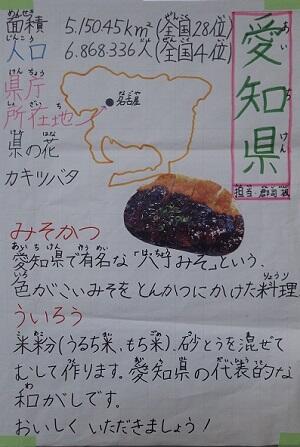 面積 5,150.45km² (全国28位)
人口 6,868,336人 (全国4位)
県庁
所在地
名古屋
県の花
カキツバタ
愛知県
みそかつ
愛知県で有名な「八丁みそ」という、
色がこいみそをとんかつにかけた料理
ういろう
米粉(うるち米、もち米)、砂とうを混ぜて
むして作ります。愛知県の代表的な
和がしです。
おいしくいただきましょう!